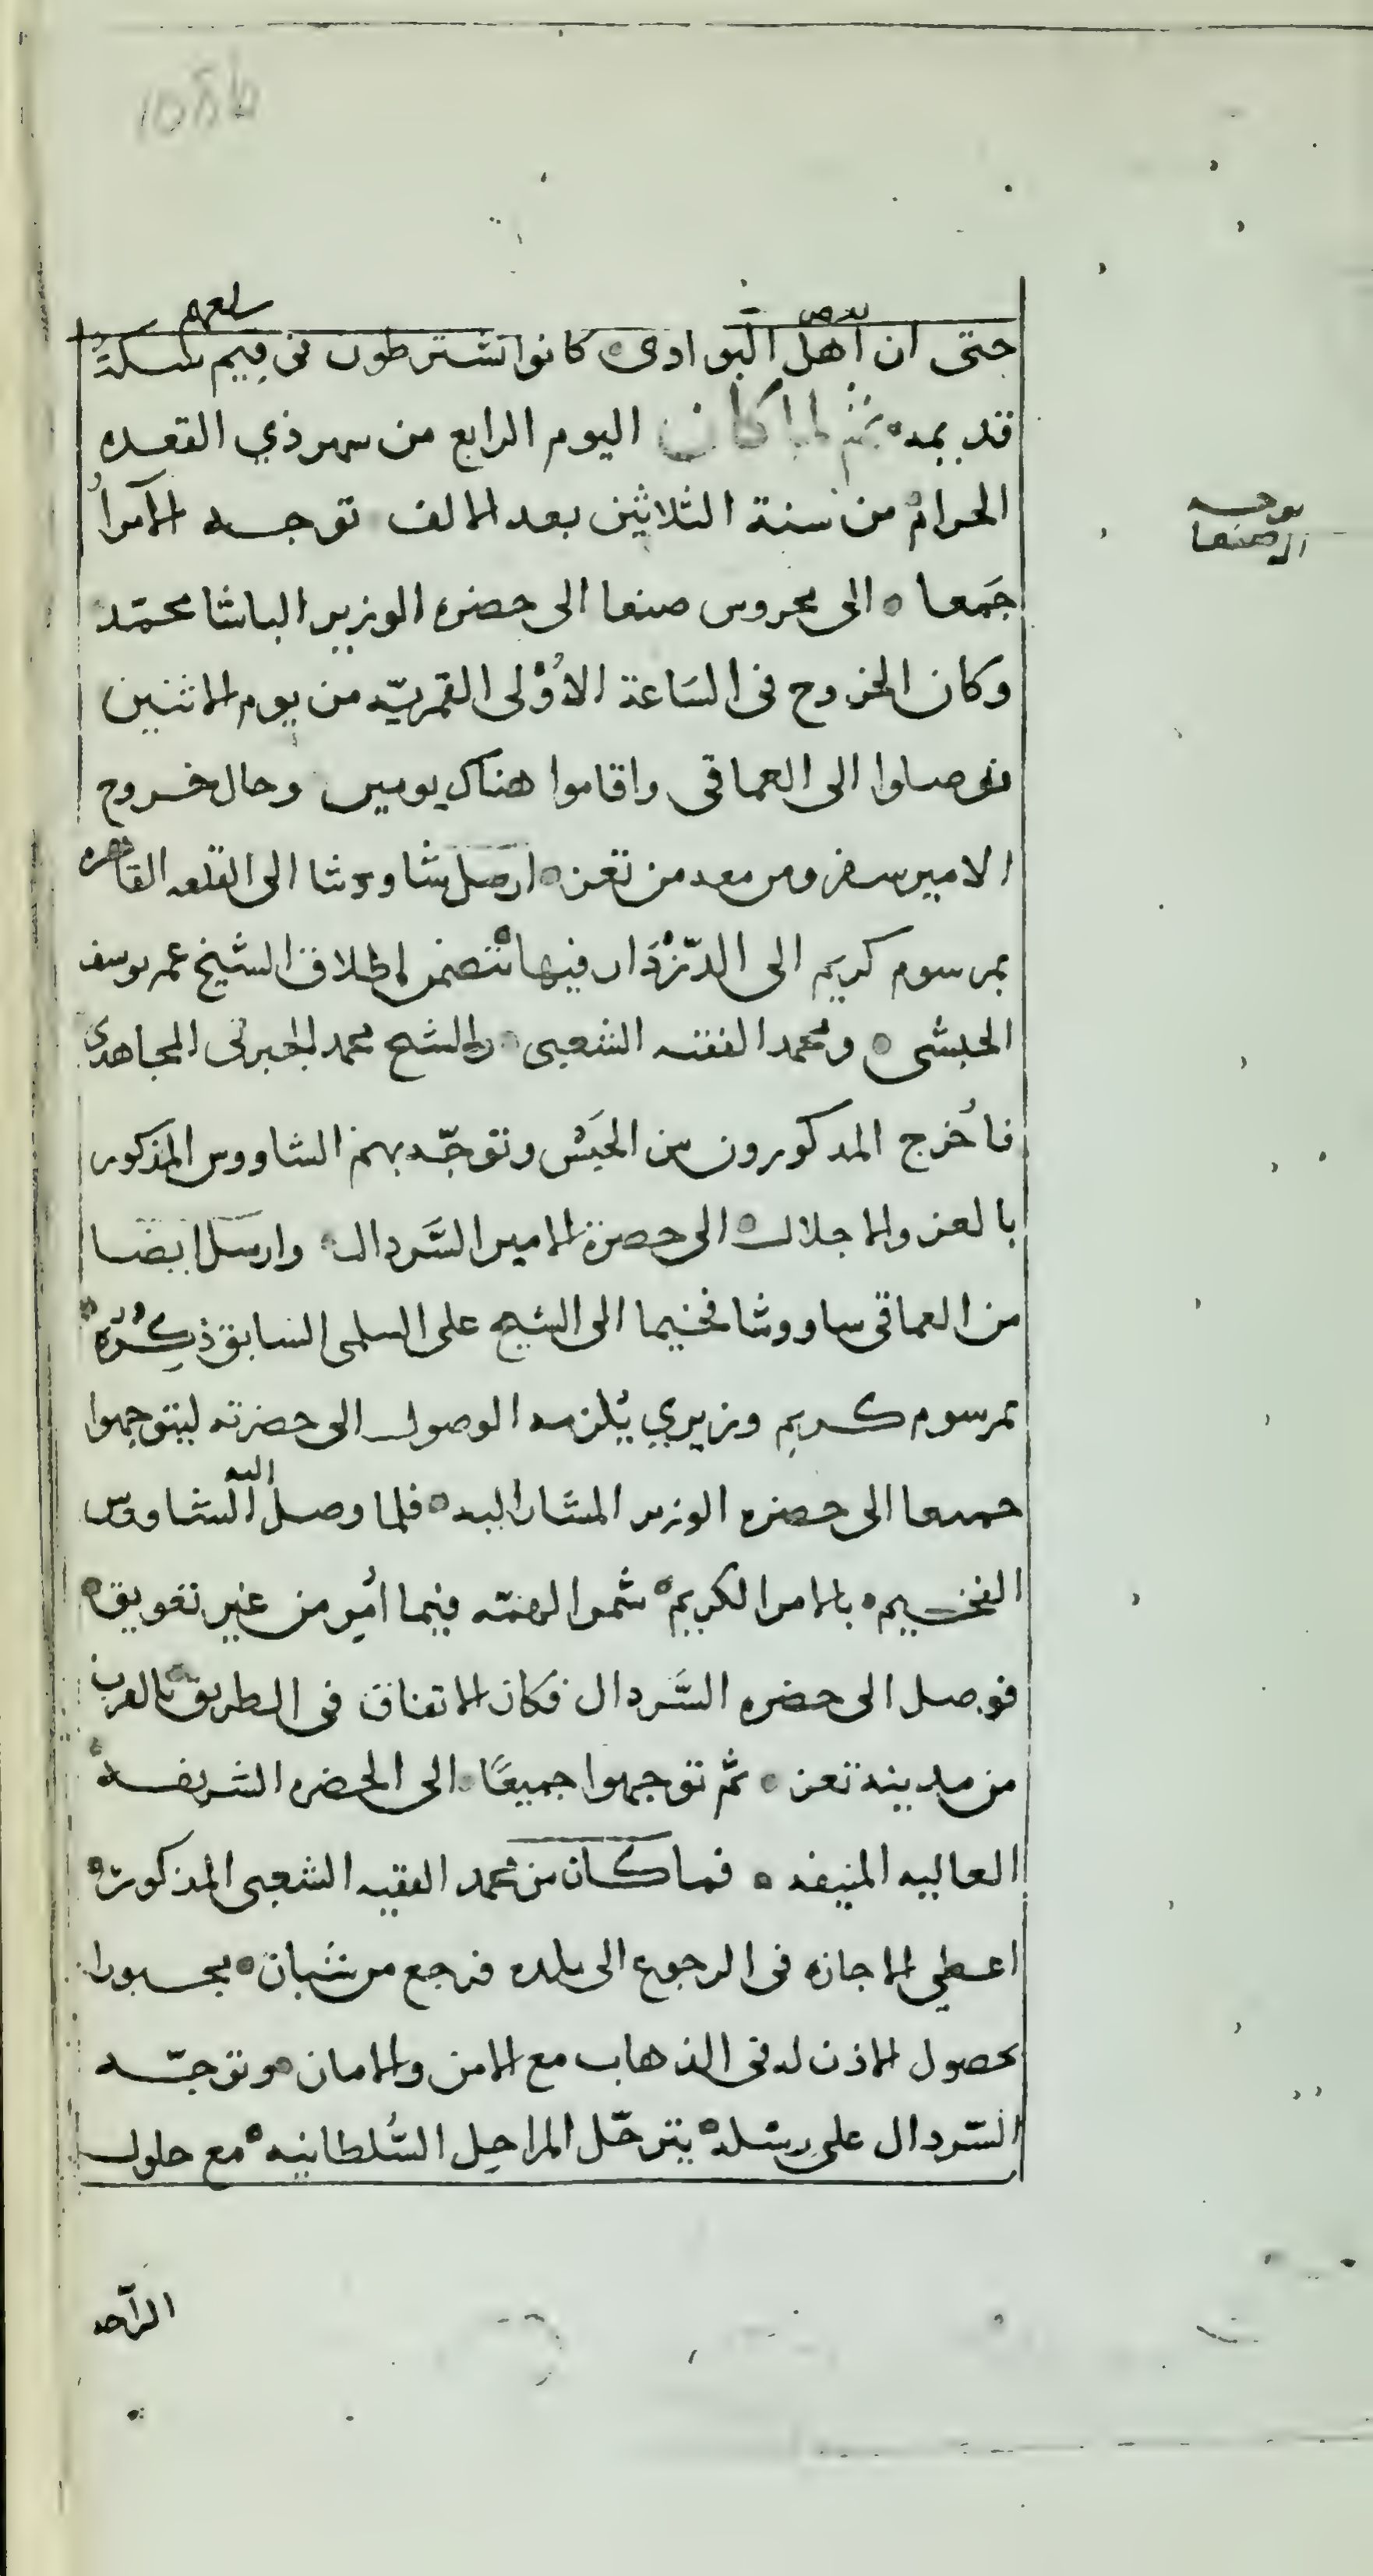 108b
بعض
سلعهم
حتى ان اهل البوادى كانوا يشترطون فى قيم
قديمه ثم لما كان اليوم الرابع من شهر ذي القعده
الحرام من سنة الثلاثين بعد الالف توجه الامرأ
توجه
الى صنعا
جمعا الى محروس صنعا الى حضره الوزير الباشا محمّد
وكان الخروج فى السَاعة الاوْلى القمريّه من يوم الاثنين
فوصلوا الى العماقى واقاموا هناك يومين وحال خروج
الامير سفر ومن معه من تعز ارسل شاووشا الى القلعه القاهره
بمرسوم كريم الى الدّزْدَار فيها يتضمن اطلاق الشيخ عمر يوسف
الحبشى ومحمد الفقيه الشعبى والشيخ محمد الجبرتى المجاهدى
فاُخرج المذكورون من الحَبْس وتوجّه بهم الشاووس المذكور
بالعز والاجلال الى حضرة الامير السَّردال وارسل ايضا
من العماقى ساووشا فخيما الى الشيخ على السلمى السابق ذِكْرُهُ
بمرسوم كريم وزيري يُلزمه الوصول الى حضرته ليتوجهوا
جميعا الى حضره الوزير المشار اليه فلما وصل اليه الشاووس
الفخيم بالامر الكريم شمر الهمّه فيما اُمِر من غير تعويق
فوصل الى حضره السَّردال فكان الاتفاق فى الطريق بالقرب
من مدينة تعز ثم توجهوا جميعًا الى الحضره الشريفه
العاليه المنيفه فما كان من محمد الفقيه الشعبى المذكور
اعطي الاجازه فى الرجوع الى بلده فرجع من شبان مجبورا
بحصول الاذن له فى الذهاب مع الامن والامان وتوجّه
السّردال على رسله يترحّل المراحل السُّلطانيه مع حلول
الراحه